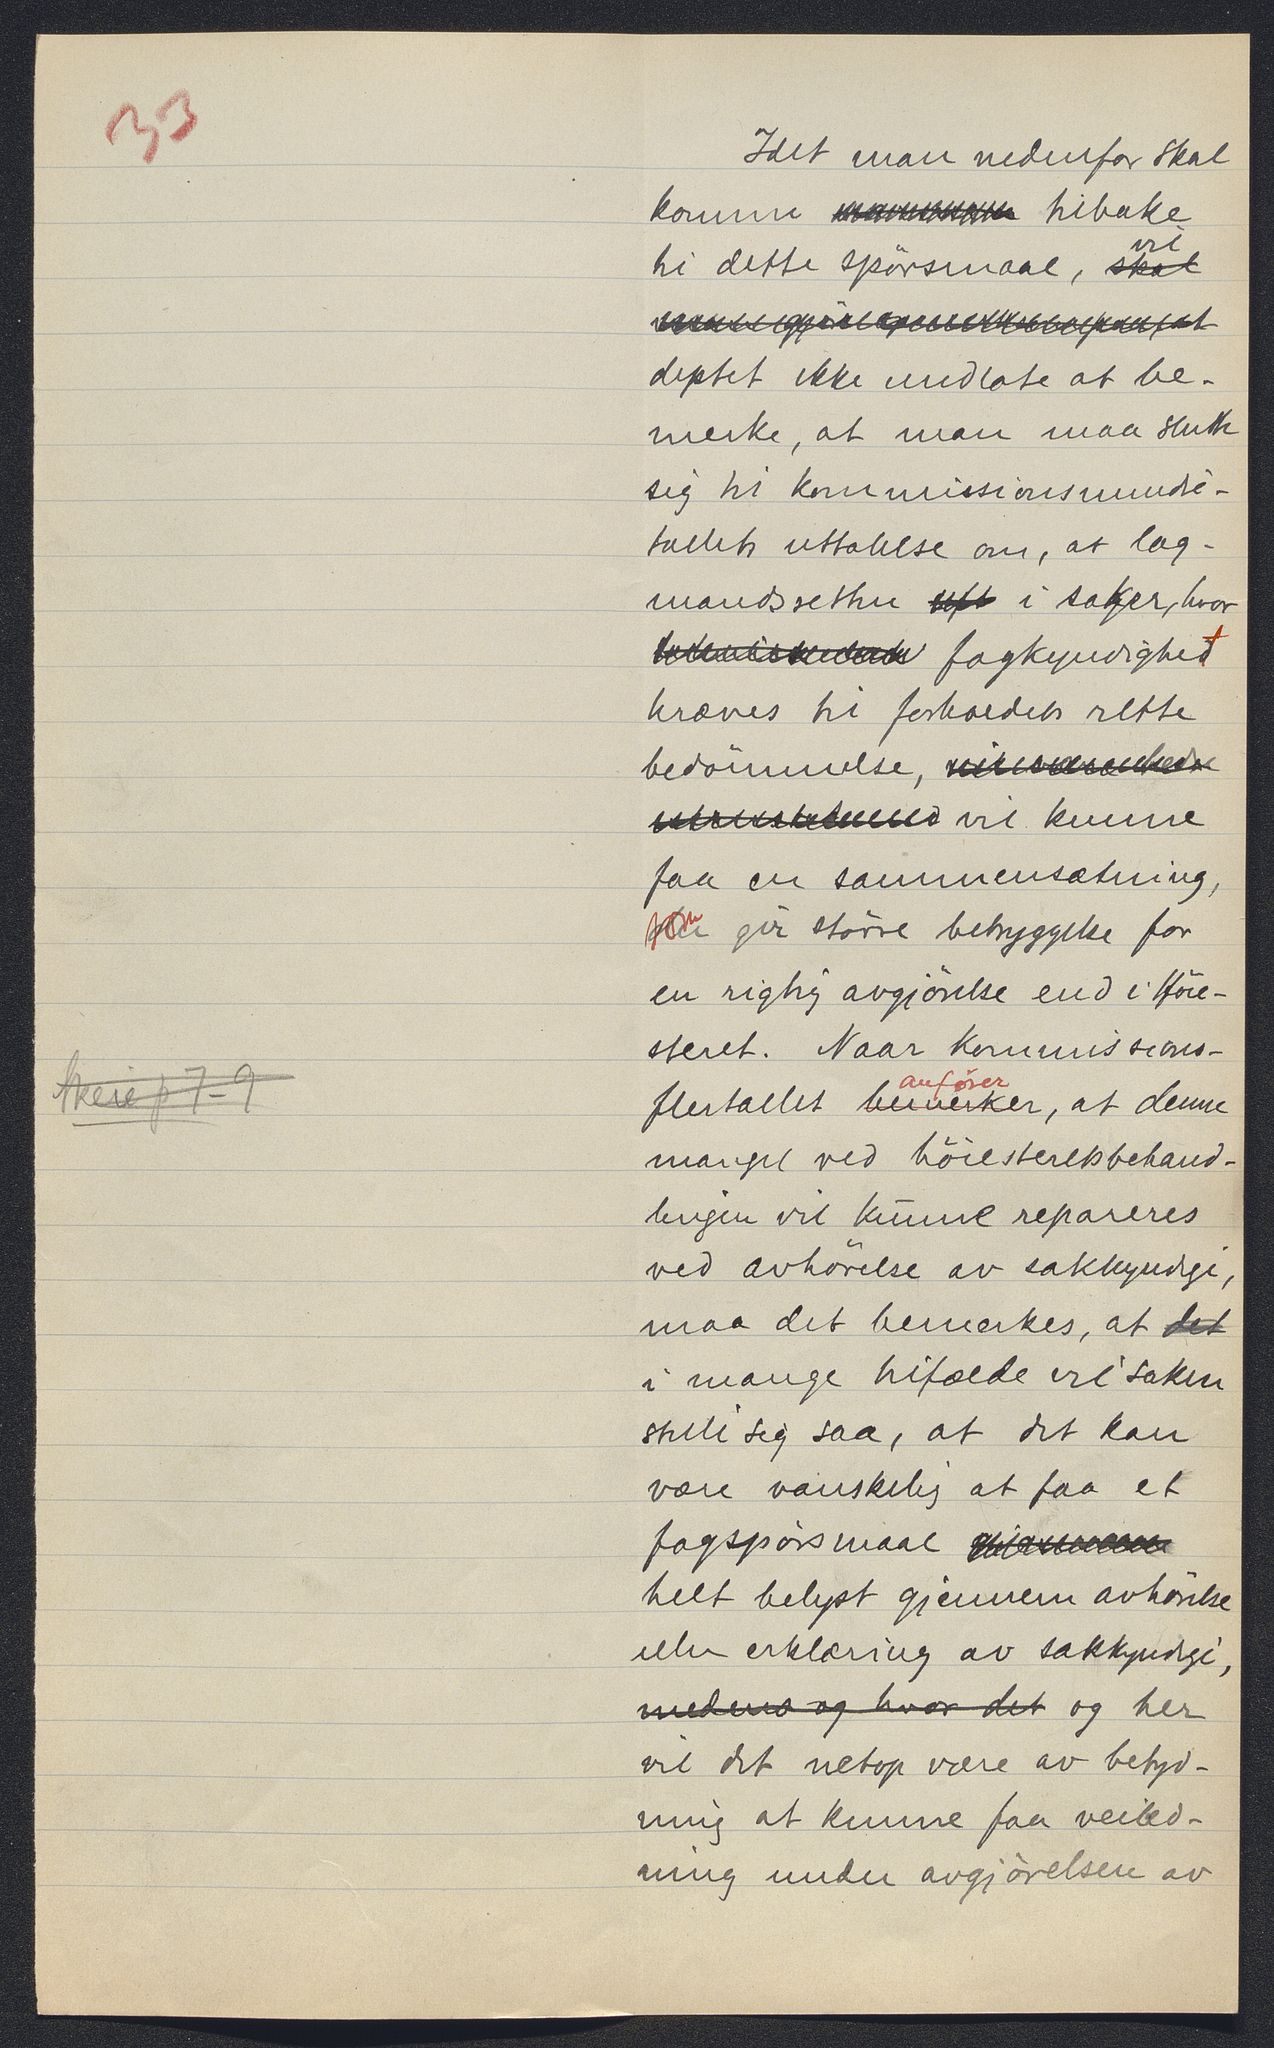 33
Idet man nedenfor skal
komme tilbake
til dette spörsmaal, skal vil
deptet ikke undlate at be-
merke, at man maa slutte
sig til kommissionsmindre-
tallets uttalelse om, at lag-
mandsretten i saker, hvor
fagkyndighet
kræves til forholdets rette
bedömmelse,
vil kunne
faa en sammensætning,
som gir större betryggelse for
en rigtig avgjörelse end i Höie-
steret. Naar kommissions-
flertallet bemerker anförer, at denne
mangel ved höiesteretsbehand-
lingen vil kunne repareres
ved avhörelse av sakkyndige,
maa det bemerkes, at det
i mange tilfælde vil saken
stille sig saa, at det kan
være vanskelig at faa et
fagspörsmaal
helt belyst gjennem avhörelse
eller erklæring av sakkyndige,
medens og hvor det og her
vil det netop være av betyd-
ning at kunne faa veiled-
ning under avgjörelsen av
p 7-9